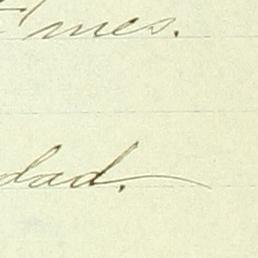 mes.
dad.